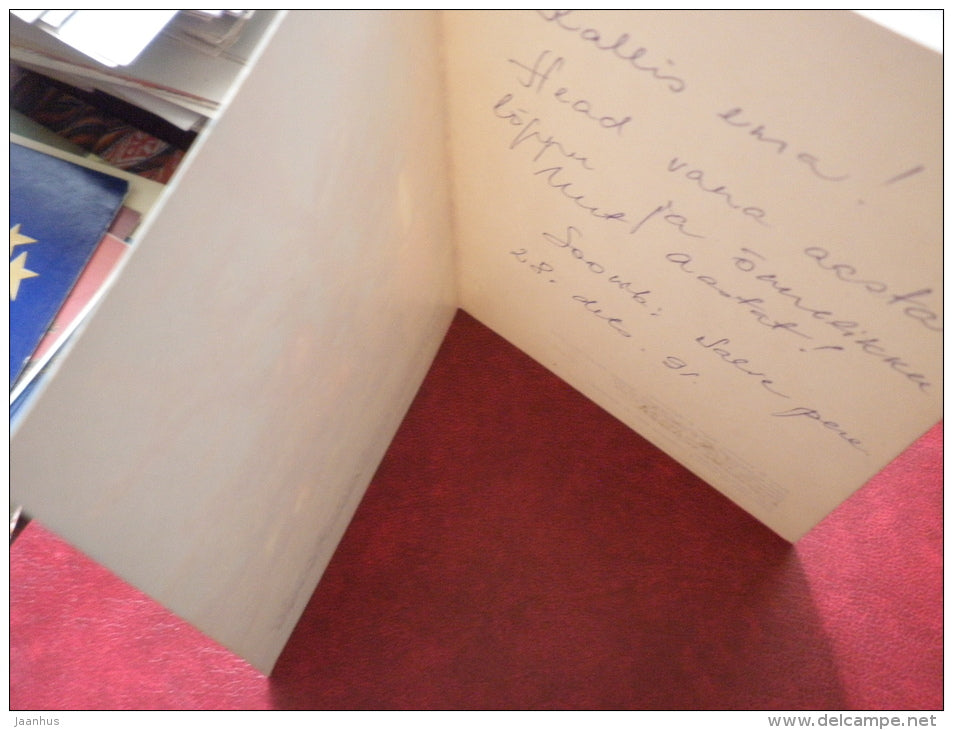 Kallis ema!
Head vana aasta
lõppu ja õnnelikku
uut aastat!
Soovib: Salve pere
28. dets. 91.
Jaanhus
www.delcampe.net